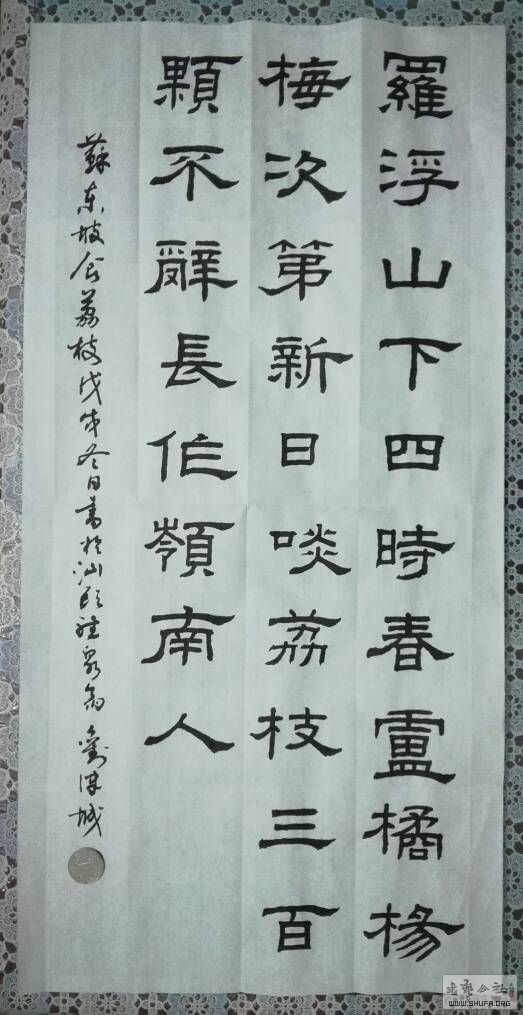 羅浮山下四時春盧橘楊
梅次第新日啖荔枝三百
顆不辭長作嶺南人
蘇東坡食荔枝戊戌冬日書於汕頭
書藝公社
WWW.SHUFA.ORG